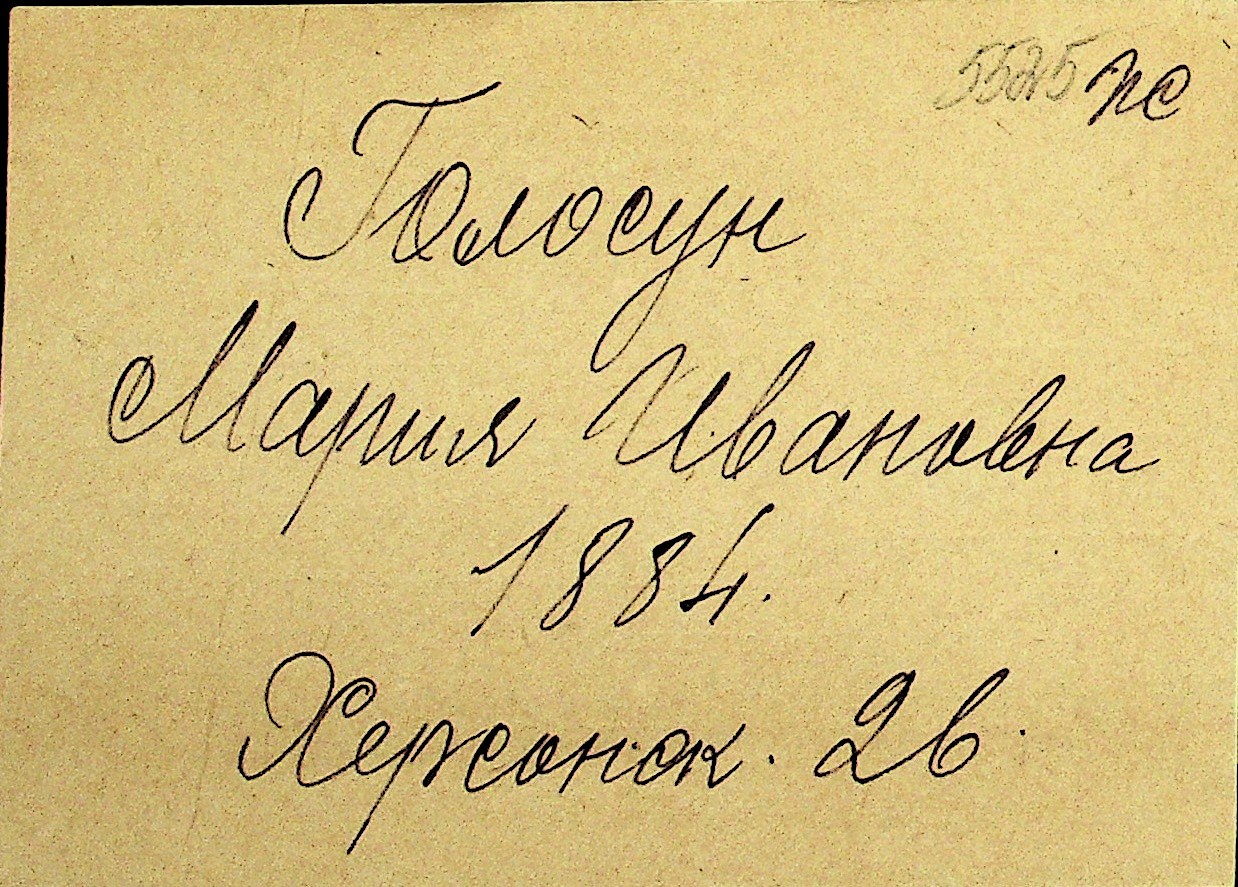 5525 ПС
Голосун
Мария Ивановна
1884.
Херсонск. 2в.